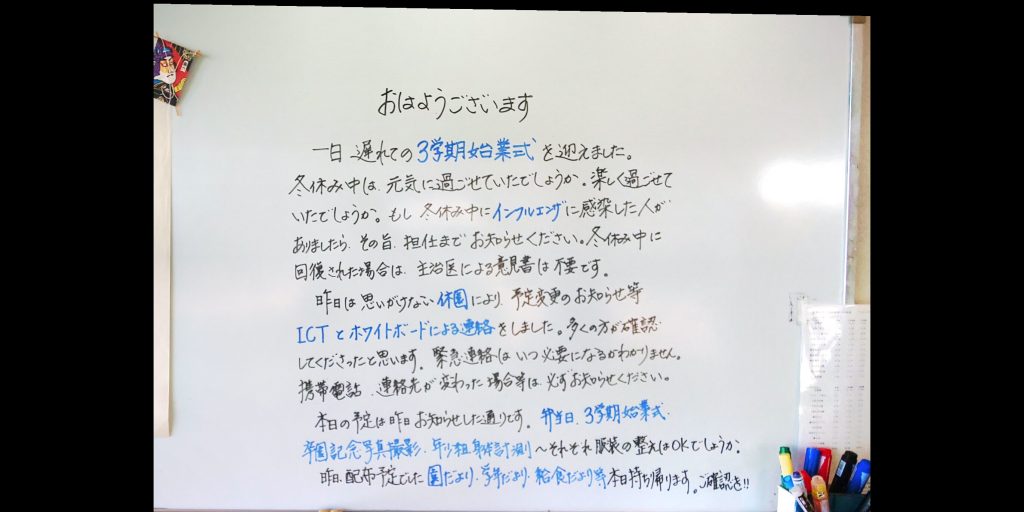 おはようございます
一日遅れての3学期始業式を迎えました。
冬休み中は、元気に過ごせていたでしょうか。楽しく過ごせて
いたでしょうか。もし冬休み中にインフルエンザに感染した人が
ありましたら、その旨、担任までお知らせください。冬休み中に
回復された場合は、主治医による意見書は不要です。
昨日は思いがけない休園により、予定変更のお知らせ等
ICTとホワイトボードによる連絡をしました。多くの方が確認
してくださったと思います。緊急連絡はいつ必要になるかわかりません。
携帯電話、連絡先が変わった場合等は、必ずお知らせください。
本日の予定は昨日お知らせした通りです。弁当日、3学期始業式、
卒園記念写真撮影、年少組身体計測〜それぞれ服装の整えはOKでしょうか。
昨日、配布予定でした園だより、学年だより、給食だより等本日持ち帰ります。ご確認を!!